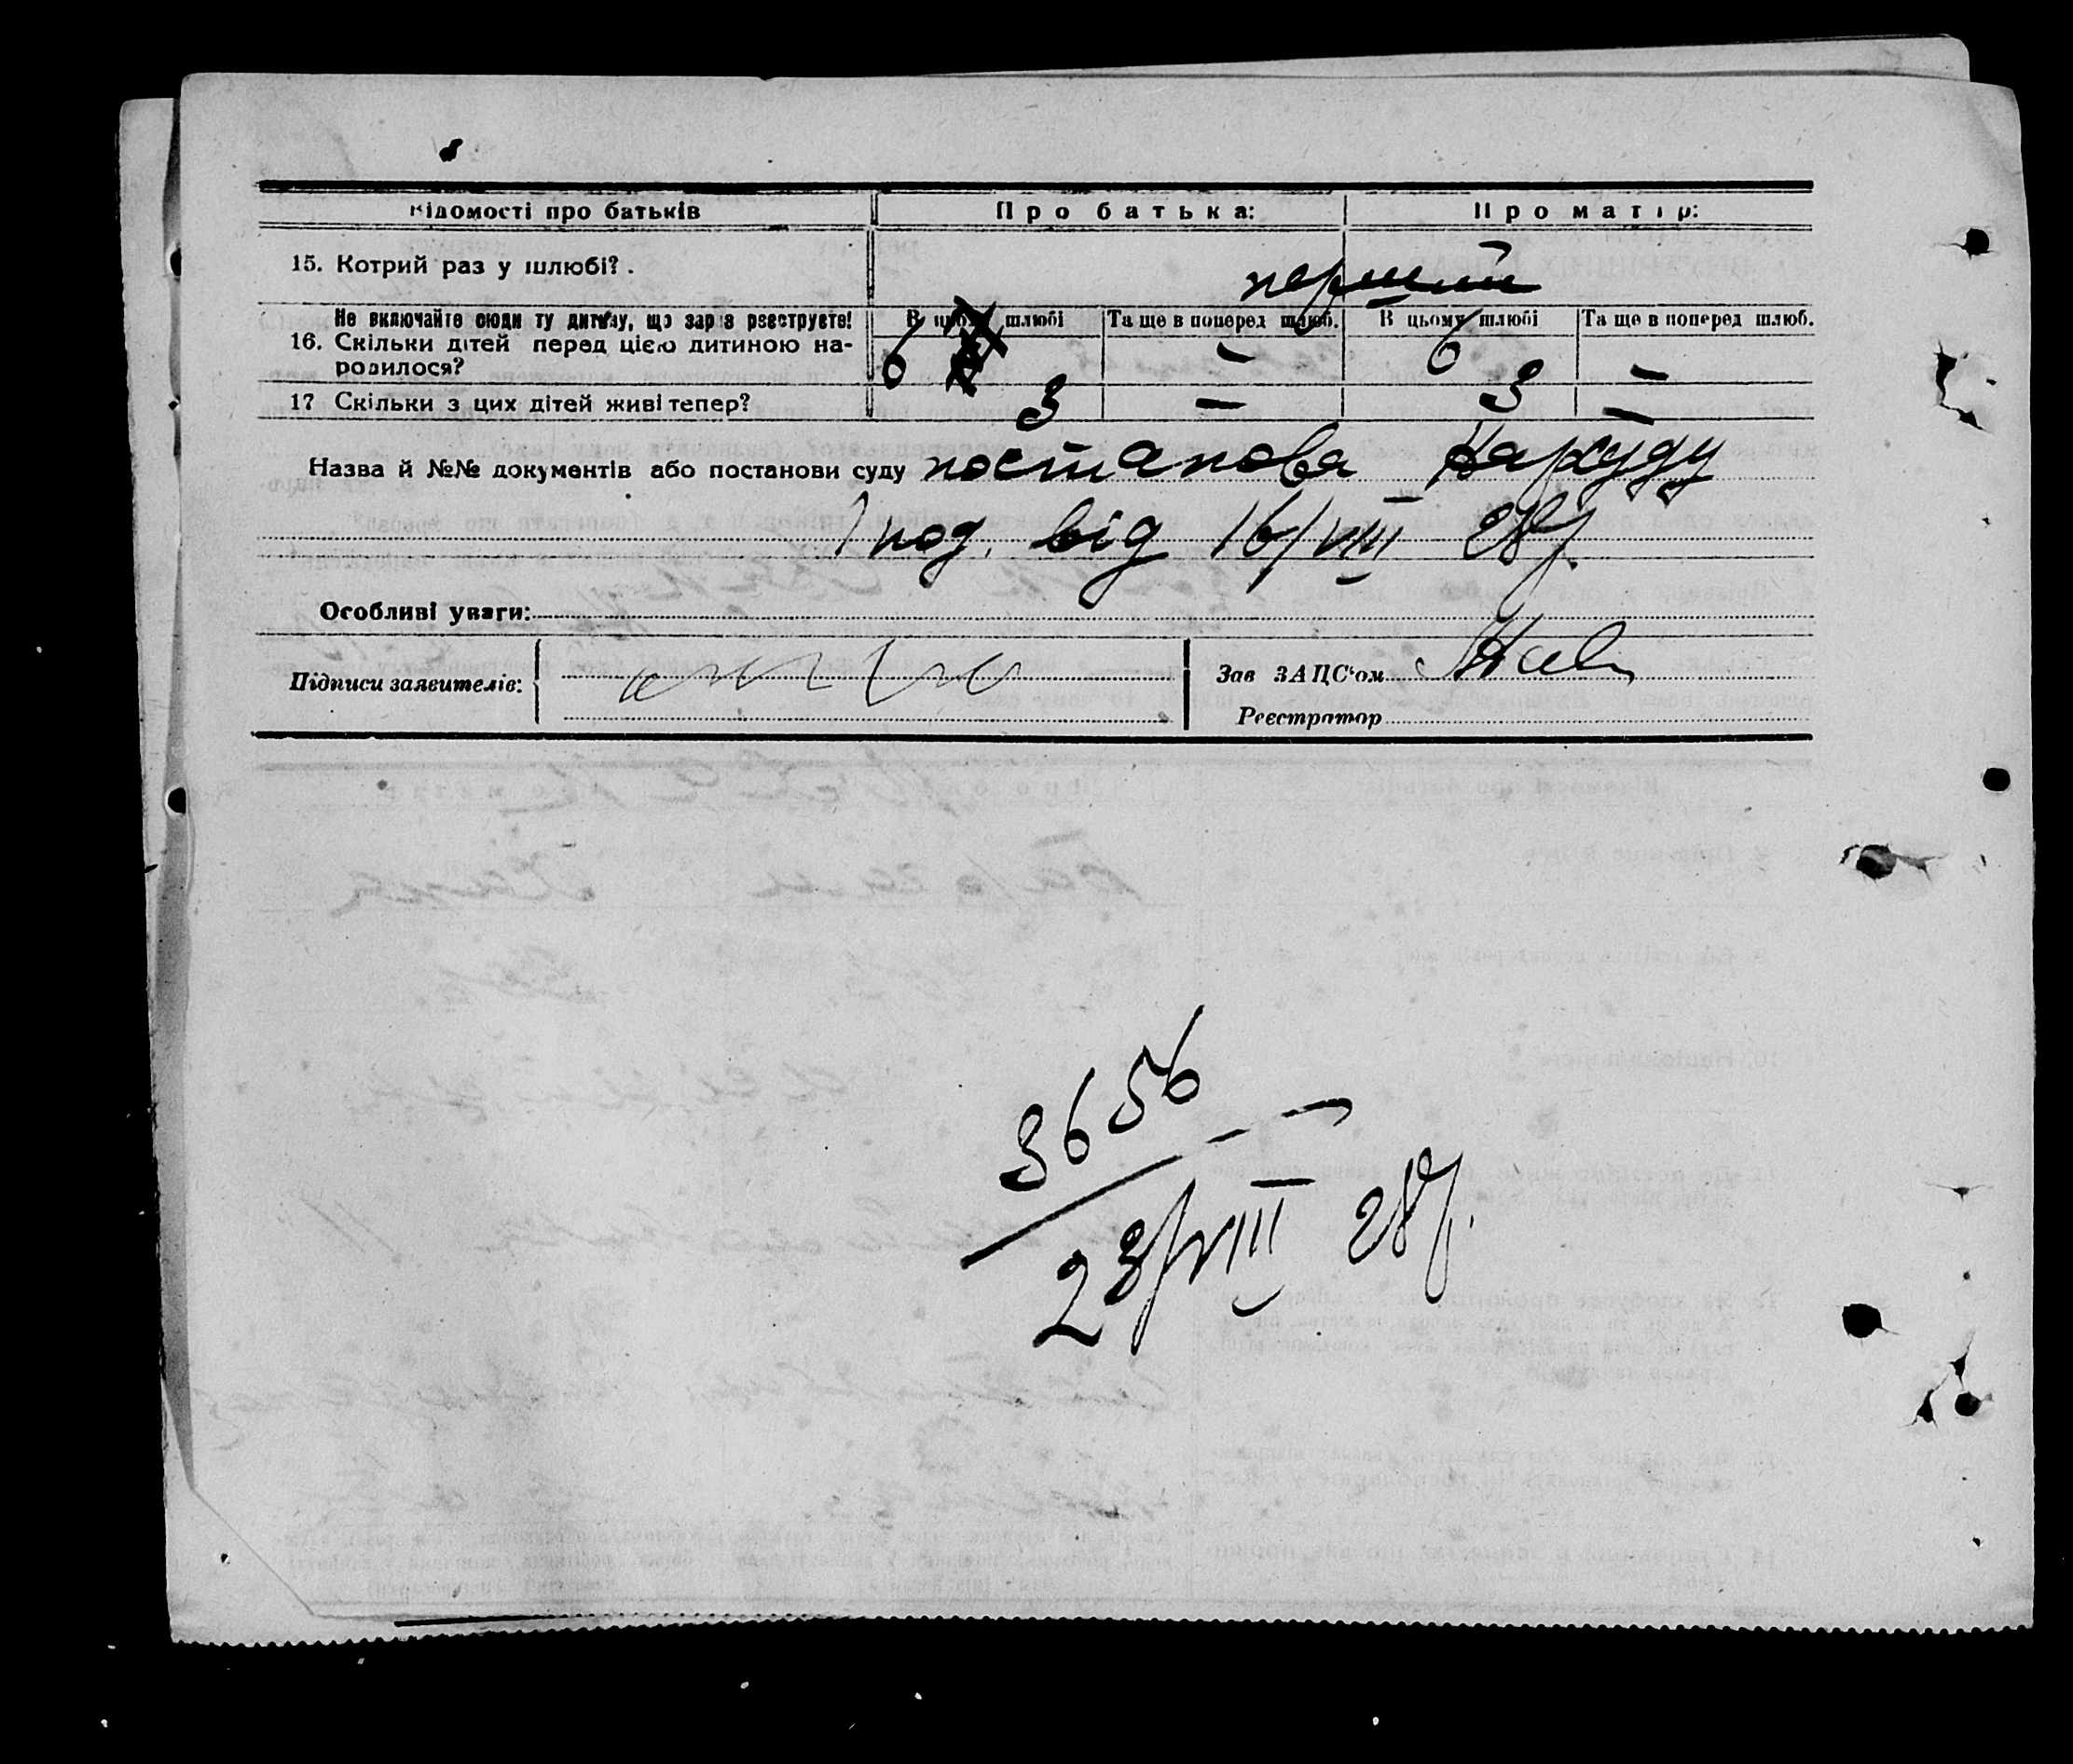 Відомості про батьків Про батька: Про матір:
15. Котрий раз у шлюбі? . перший
Не включайте сюди ту дитину, що зараз реєструєте! В цьому шлюбі Та ще в поперед шлюб. В цьому шлюбі Та ще в поперед шлюб.
16. Скільки дітей перед цією дитиною на-
родилося? 6 — 6 —
17 Скільки з цих дітей живі тепер? 3 — 3 —
Назва й №№ документів або постанови суду постанова Нарсуду
від 16/VIII 28р.
Особливі уваги:
Підписи заявителів: Зав ЗАЦС'ом
Реєстратор
3656
23/VIII 28р.